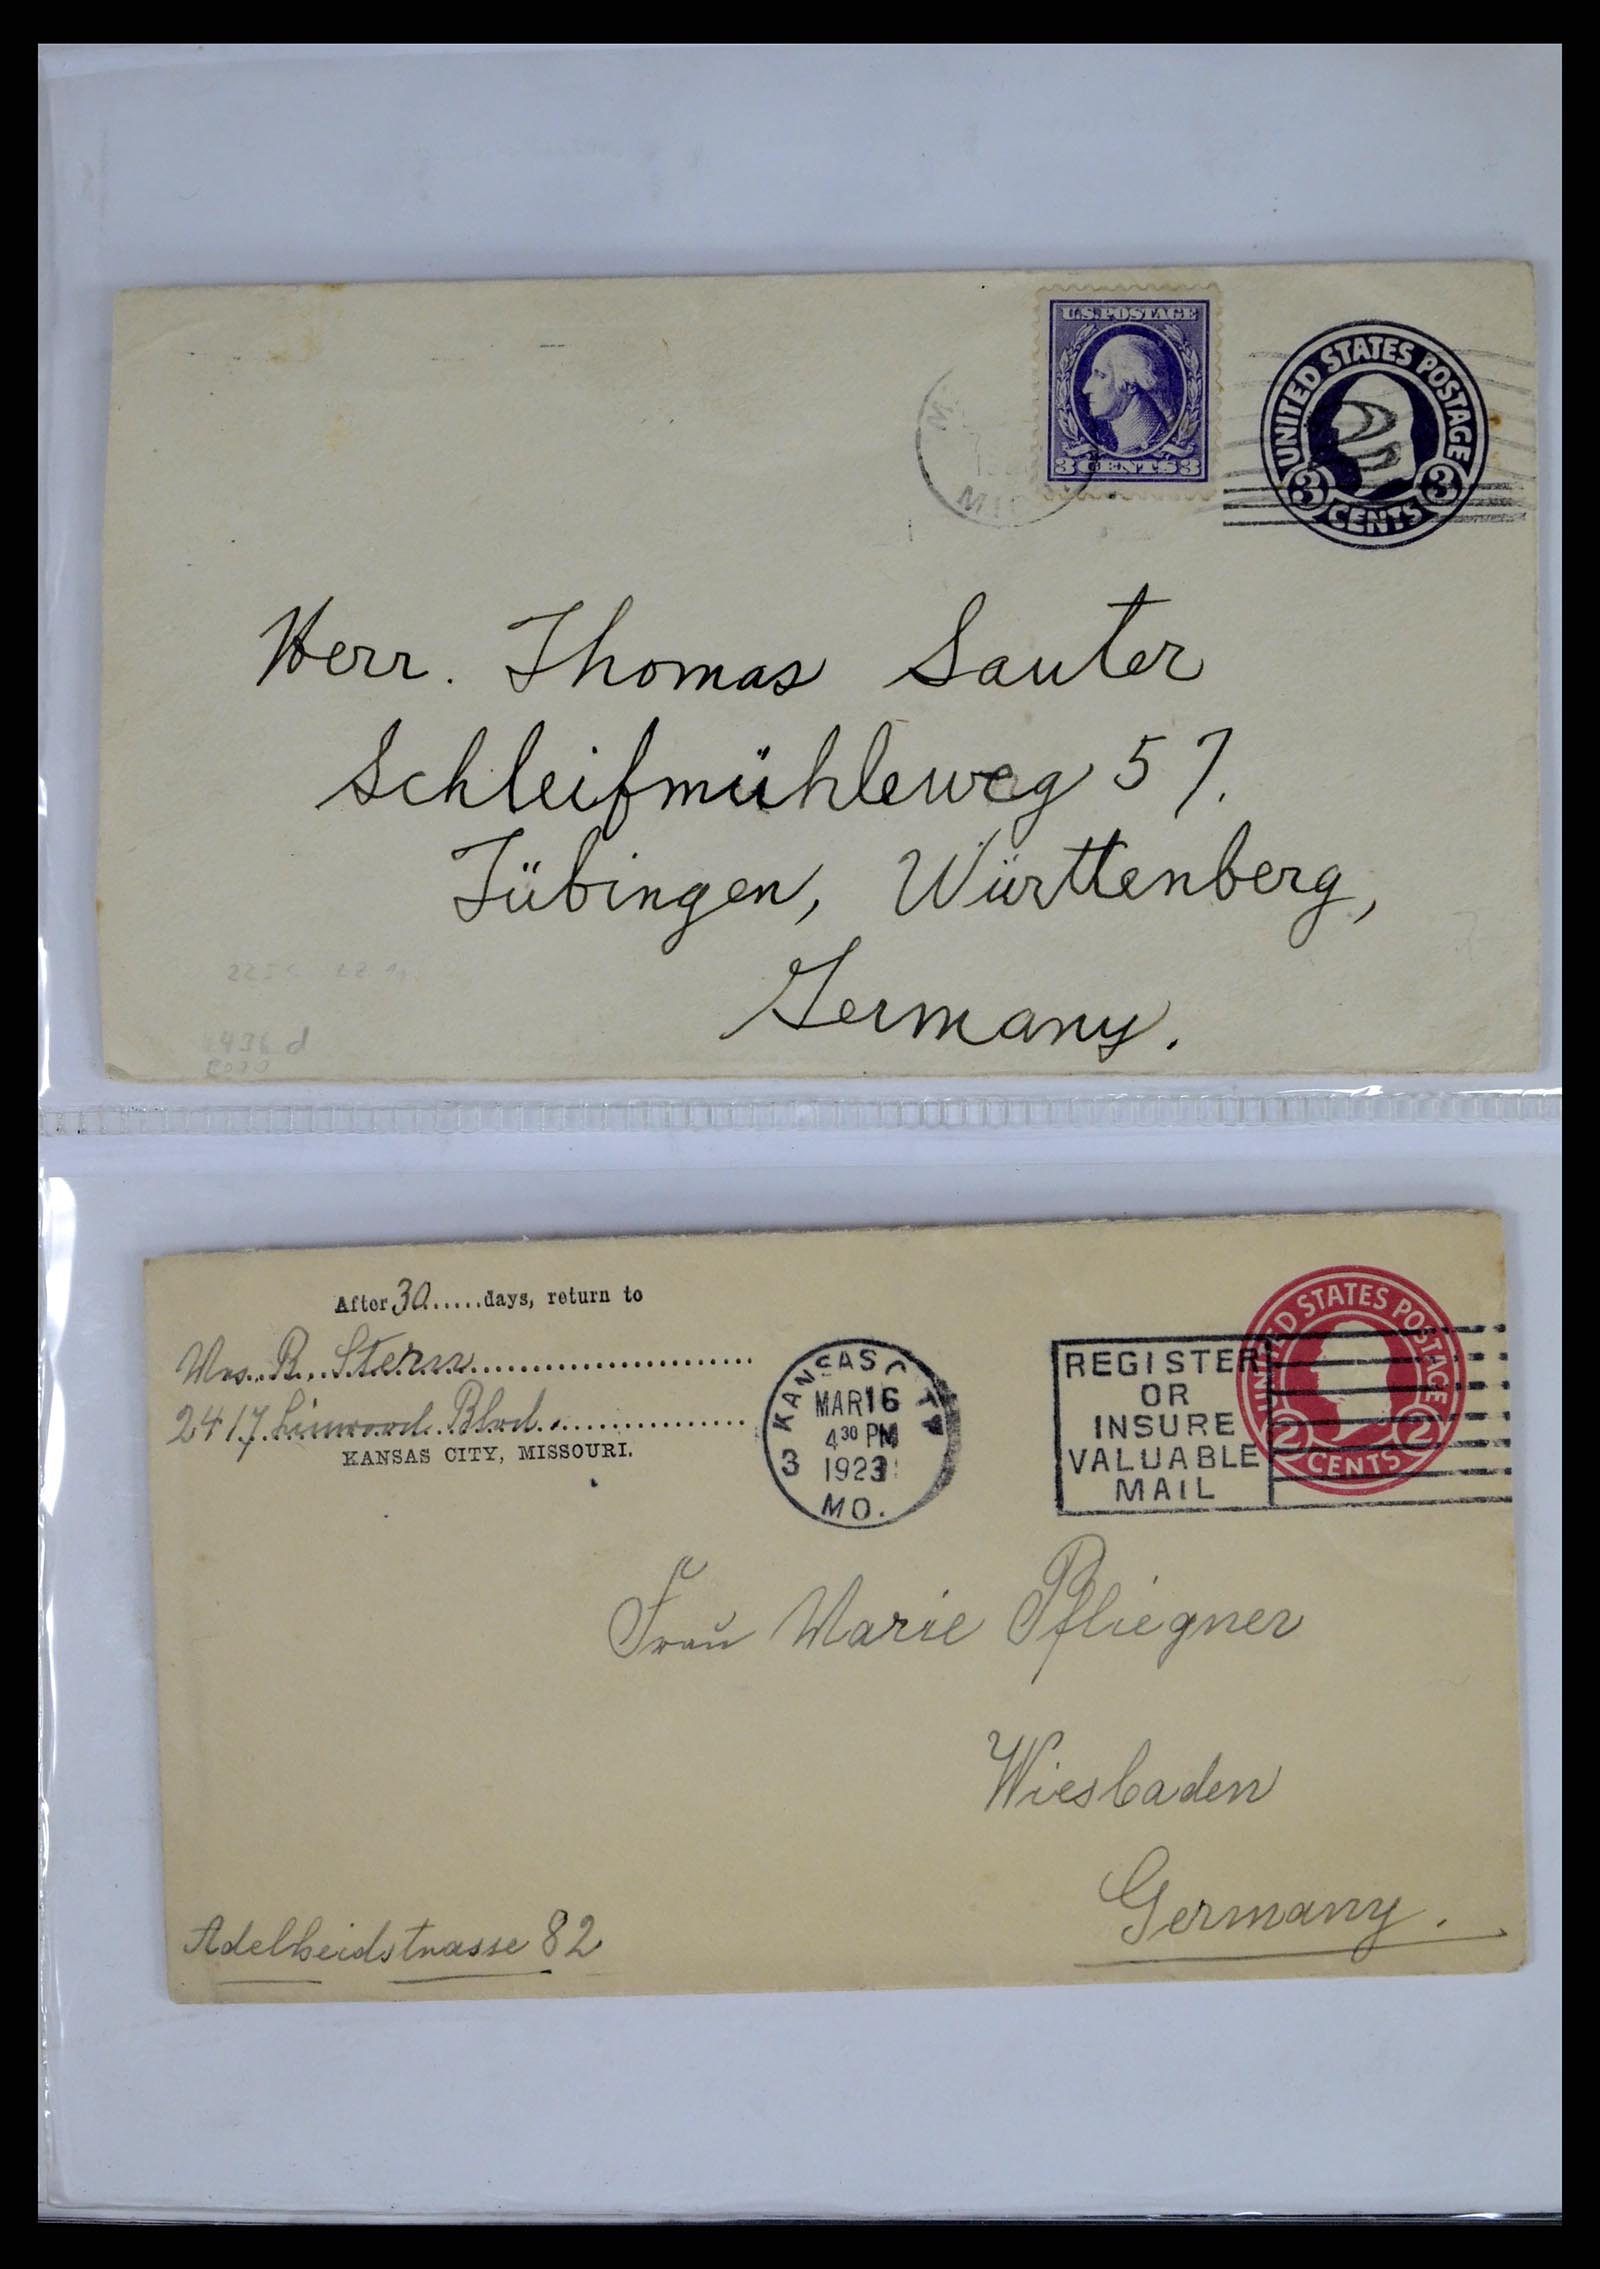 U.S. POSTAGE
3 CENTS 3
UNITED STATES POSTAGE
3 3
CENTS
Herr. Thomas Sauter
Schleifmühleweg 57.
Tübingen, Württenberg,
Germany.
After 30.....days, return to
Mrs. R. Stern
2417 Linwood Blvd.
KANSAS CITY, MISSOURI.
KANSAS CITY
MAR 16
4 30 PM
3 1923
MO.
REGISTER
OR
INSURE
VALUABLE
MAIL
UNITED STATES POSTAGE
2 2
CENTS
Frau Marie Pfliegner
Wiesbaden
Germany.
Adelheidstrasse 82